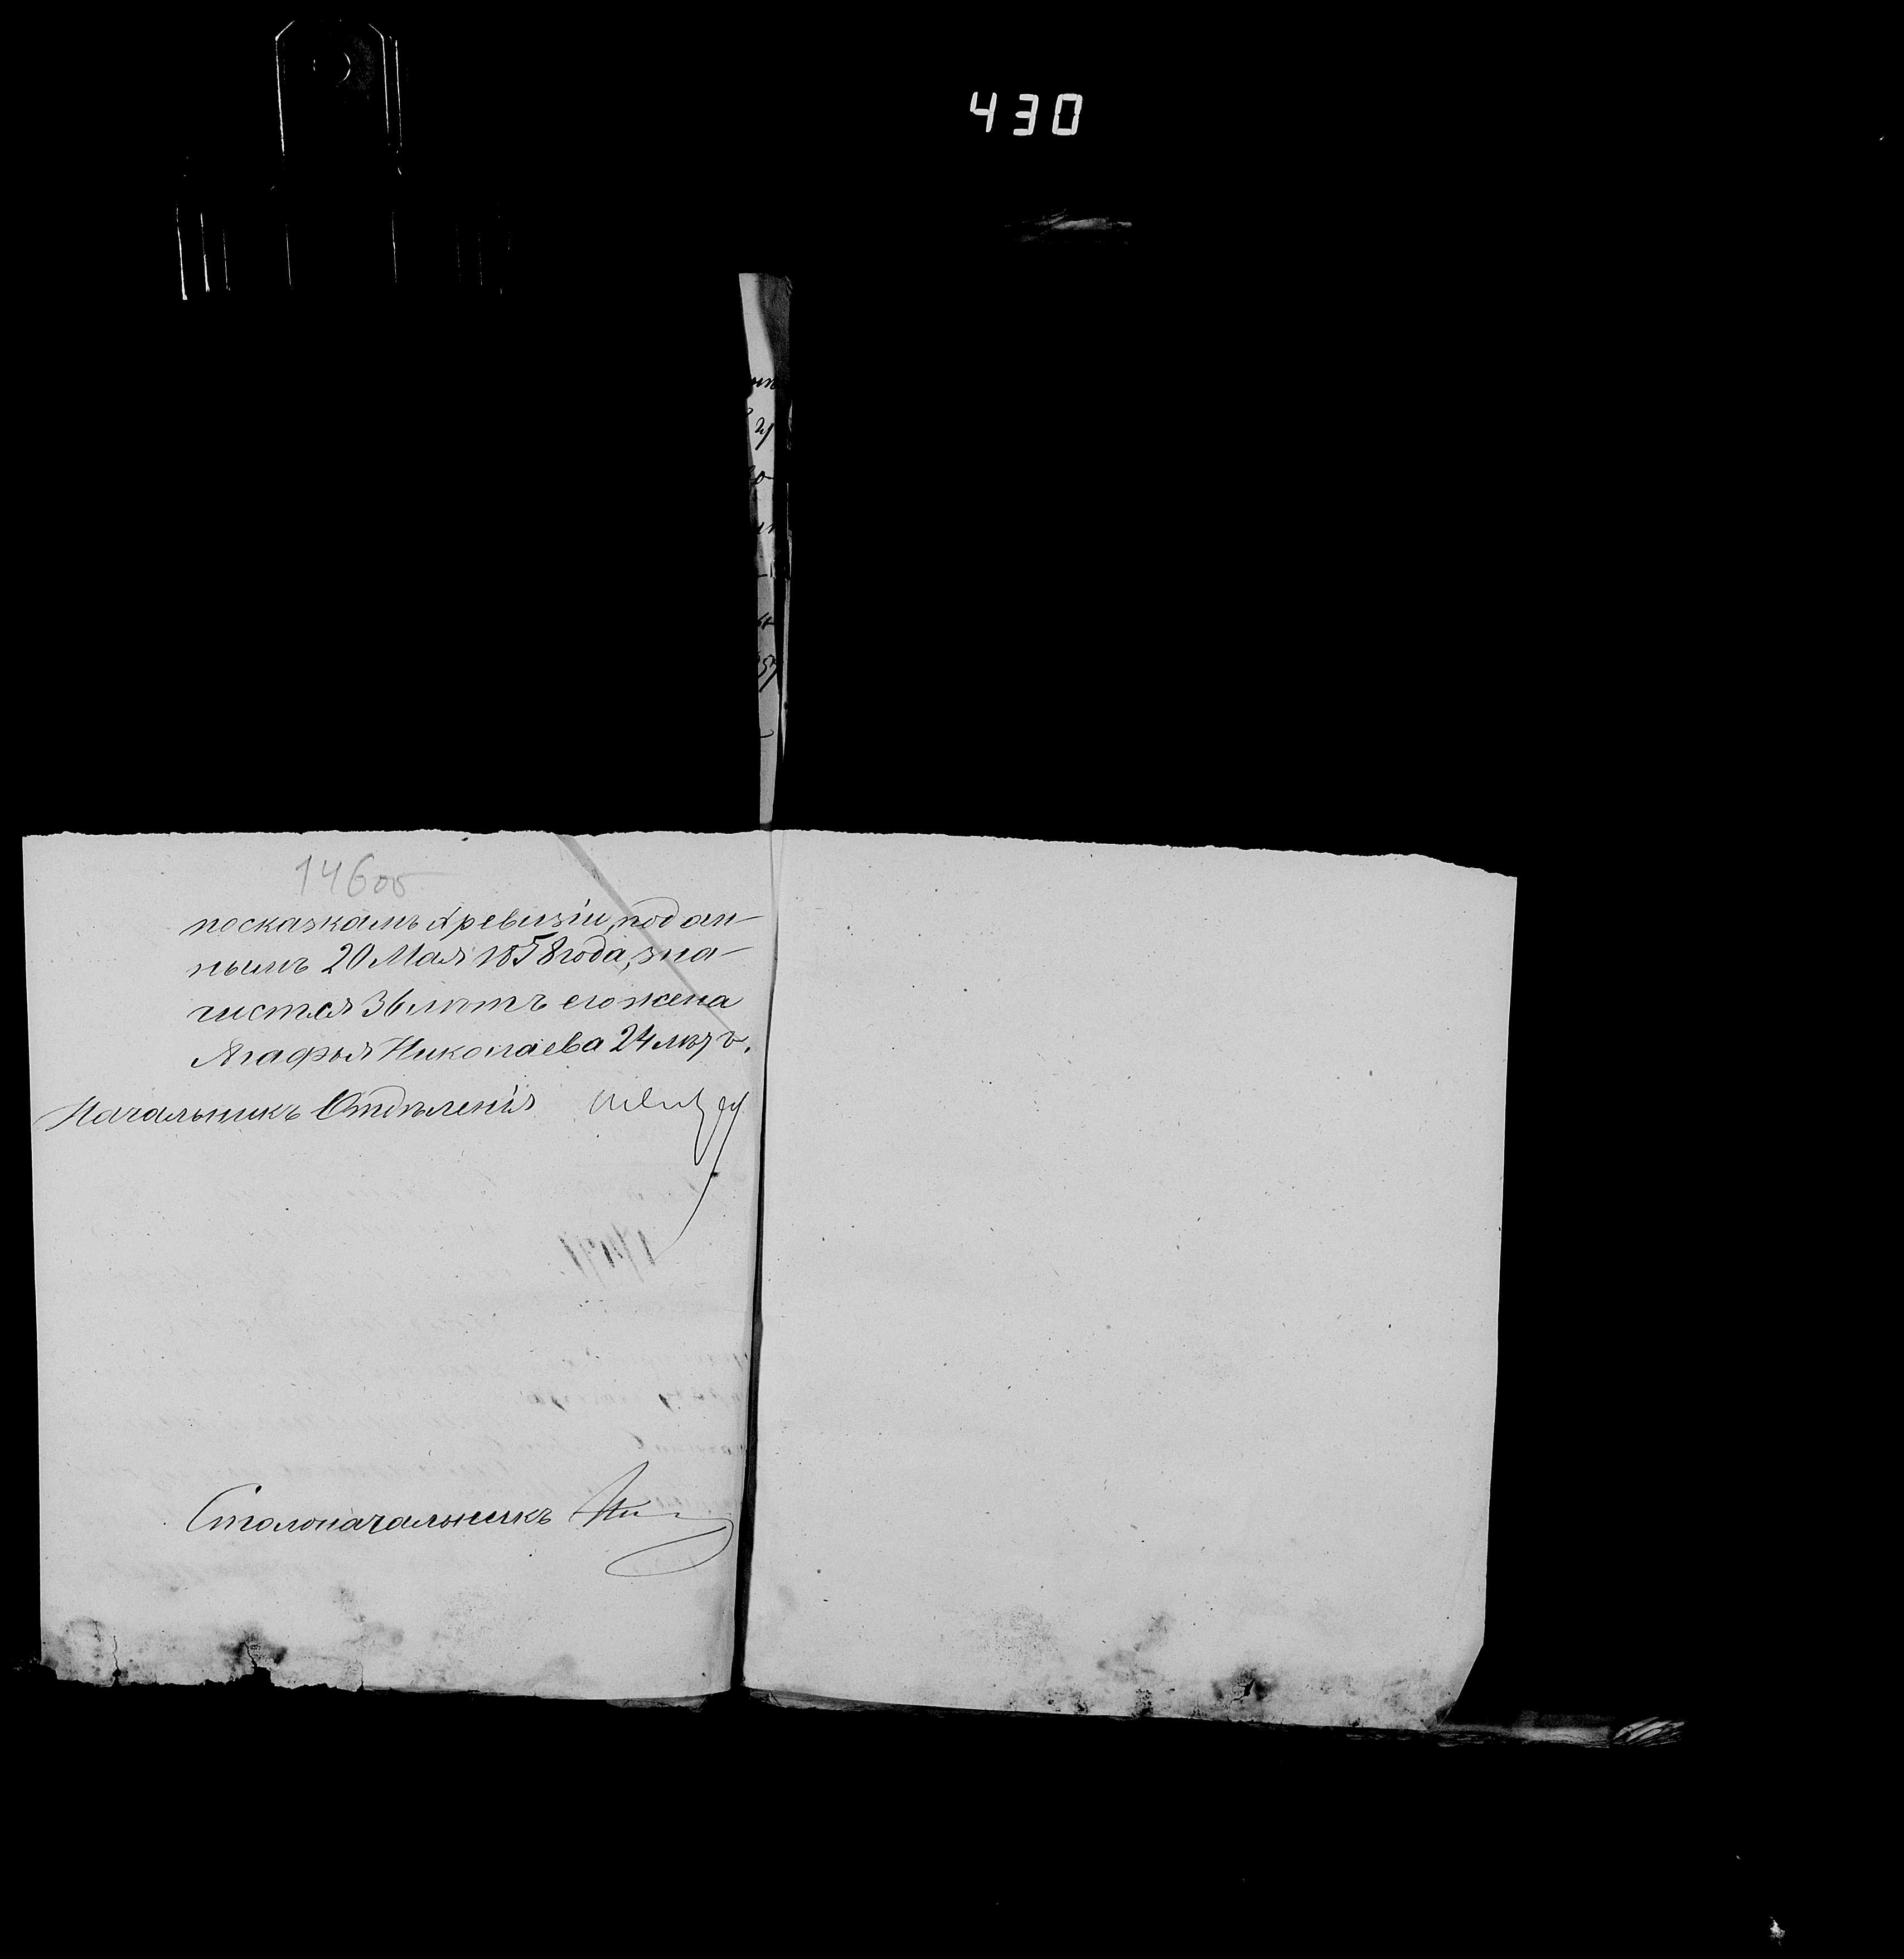 430
146об
по сказкамъ X ревизіи, подан-
нымъ 20 Мая 1858 года, зна-
чится 36 лѣтъ его жена
Агафья Николаева 24 лѣтъ.
Начальникъ Отдѣленія
Столоначальникъ